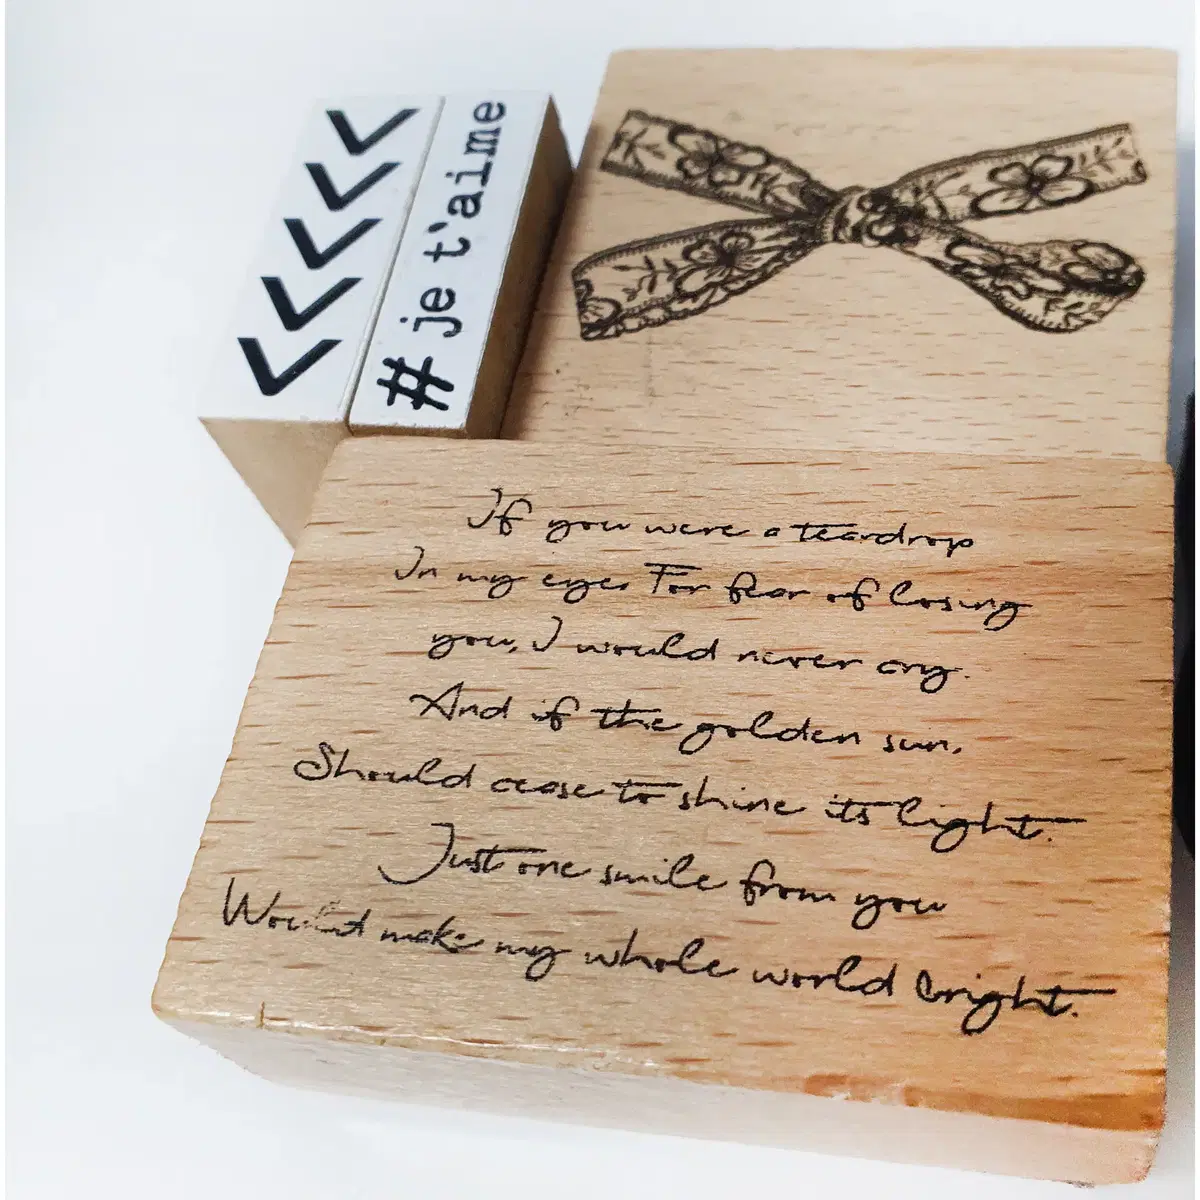 # je t'aime
If you were a teardrop
In my eyes For fear of losing
you, I would never cry.
And if the golden sun,
Should cease to shine its light.
Just one smile from you
Would make my whole world bright.